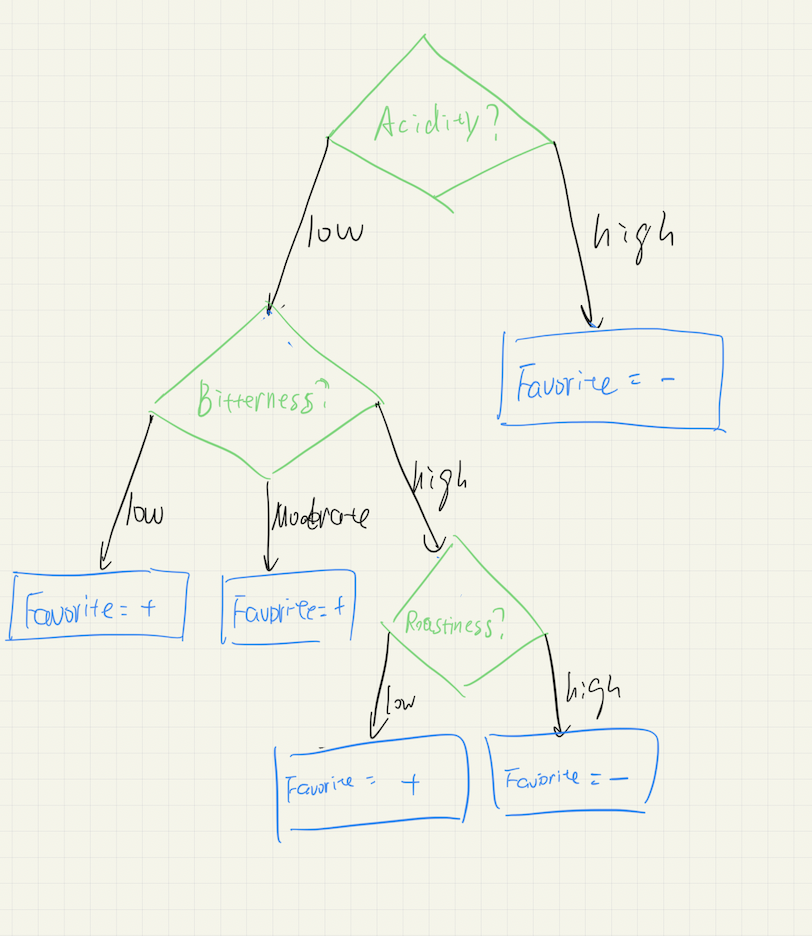 Acidity?
low
high
Favorite = -
Bitterness?
low
Moderate
high
Favorite = +
Favorite = +
Roastiness?
low
high
Favorite = +
Favorite = -